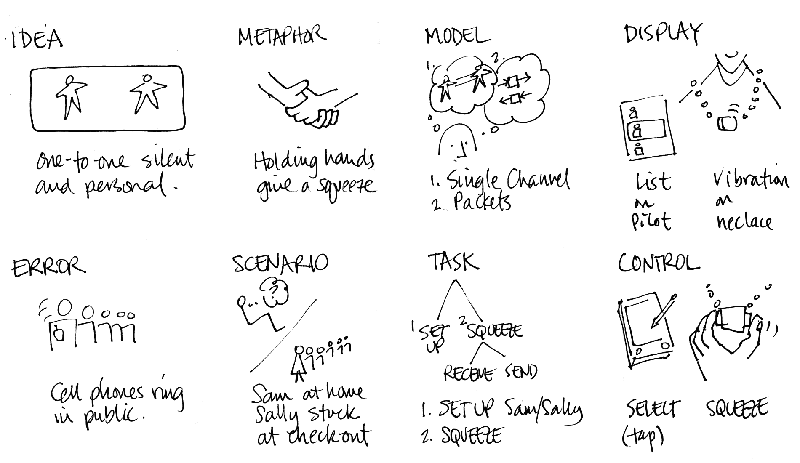 IDEA
one-to-one silent
and personal.
METAPHOR
Holding hands
give a squeeze
MODEL
1.
2
1. Single Channel
2. Packets
DISPLAY
List
on
Pilot
Vibration
on
neclace
ERROR
Cell phones ring
in public.
SCENARIO
?
Sam at home
Sally stuck
at checkout
TASK
1 SET
UP
2 SQUEEZE
RECEIVE SEND
1. SET UP Sam/Sally
2. SQUEEZE
CONTROL
SELECT
(tap)
SQUEEZE